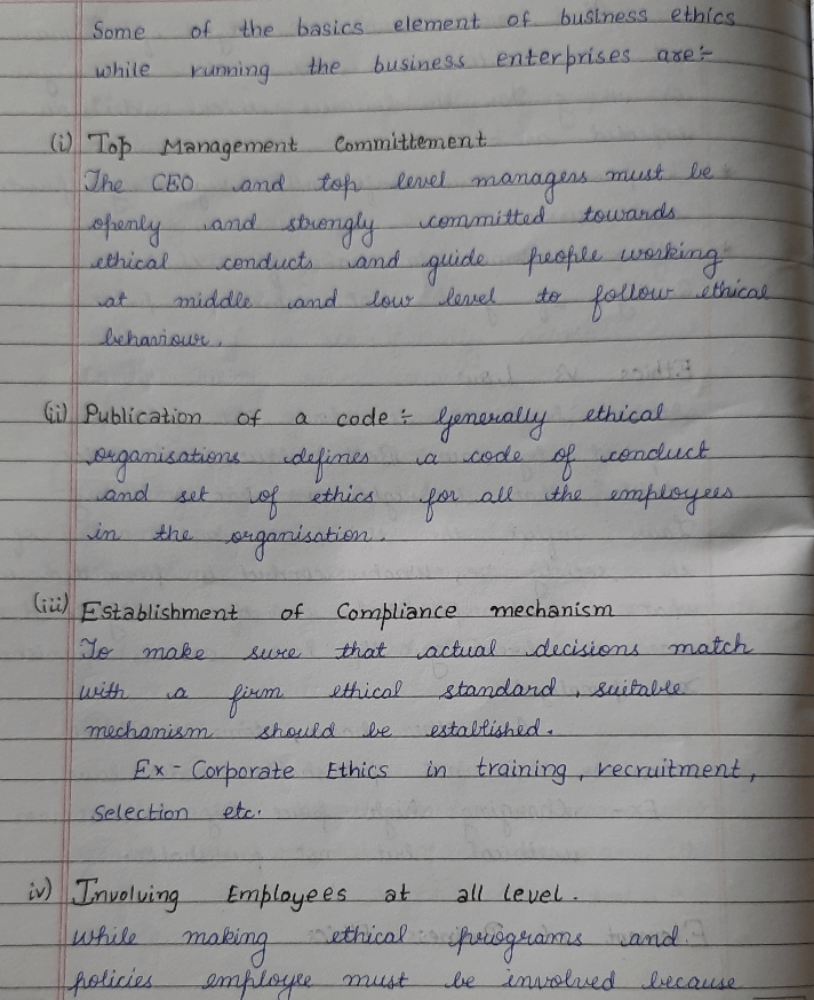 Some of the basics element of business ethics
while running the business enterprises are:-
(i) Top Management Committement
The CEO and top level managers must be
openly and strongly committed towards
ethical conducts and guide people working
at middle and low level to follow ethical
behaviour.
(ii) Publication of a code :- Generally ethical
organisations defines a code of conduct
and set of ethics for all the employees
in the organisation.
(iii) Establishment of Compliance mechanism
To make sure that actual decisions match
with a firm ethical standard, suitable
mechanism should be established.
Ex - Corporate Ethics in training, recruitment,
Selection etc.
iv) Involving Employees at all level.
While making ethical programs and
policies employee must be involved because